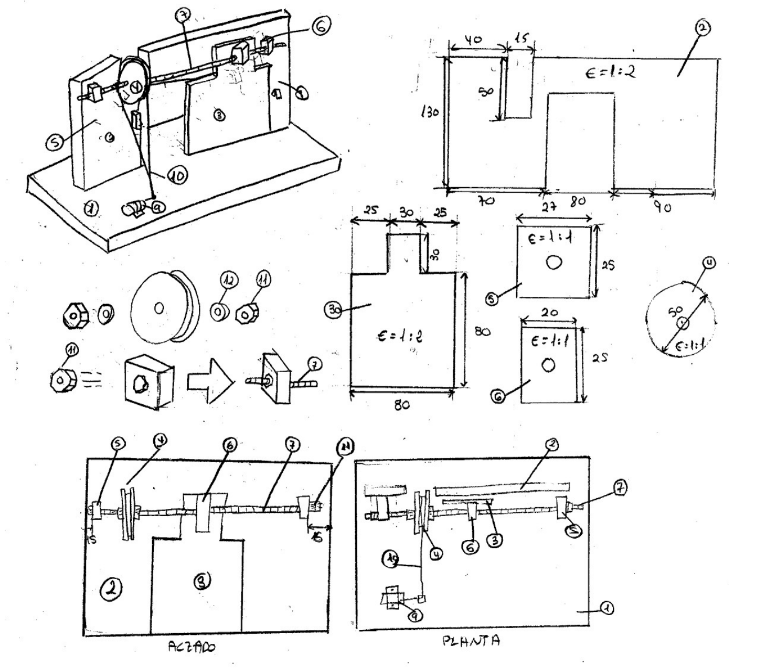 7
6
4
5
3
10
1
9
2
40
15
E=1:2
50
130
70
80
90
25
30
25
30
E=1:2
80
80
27
E=1:1
25
5
20
E=1:1
25
6
4
50
E=1:1
12
11
11
7
5
4
6
7
11
15
15
2
3
ALZADO
2
7
5
3
6
4
10
9
1
PLANTA